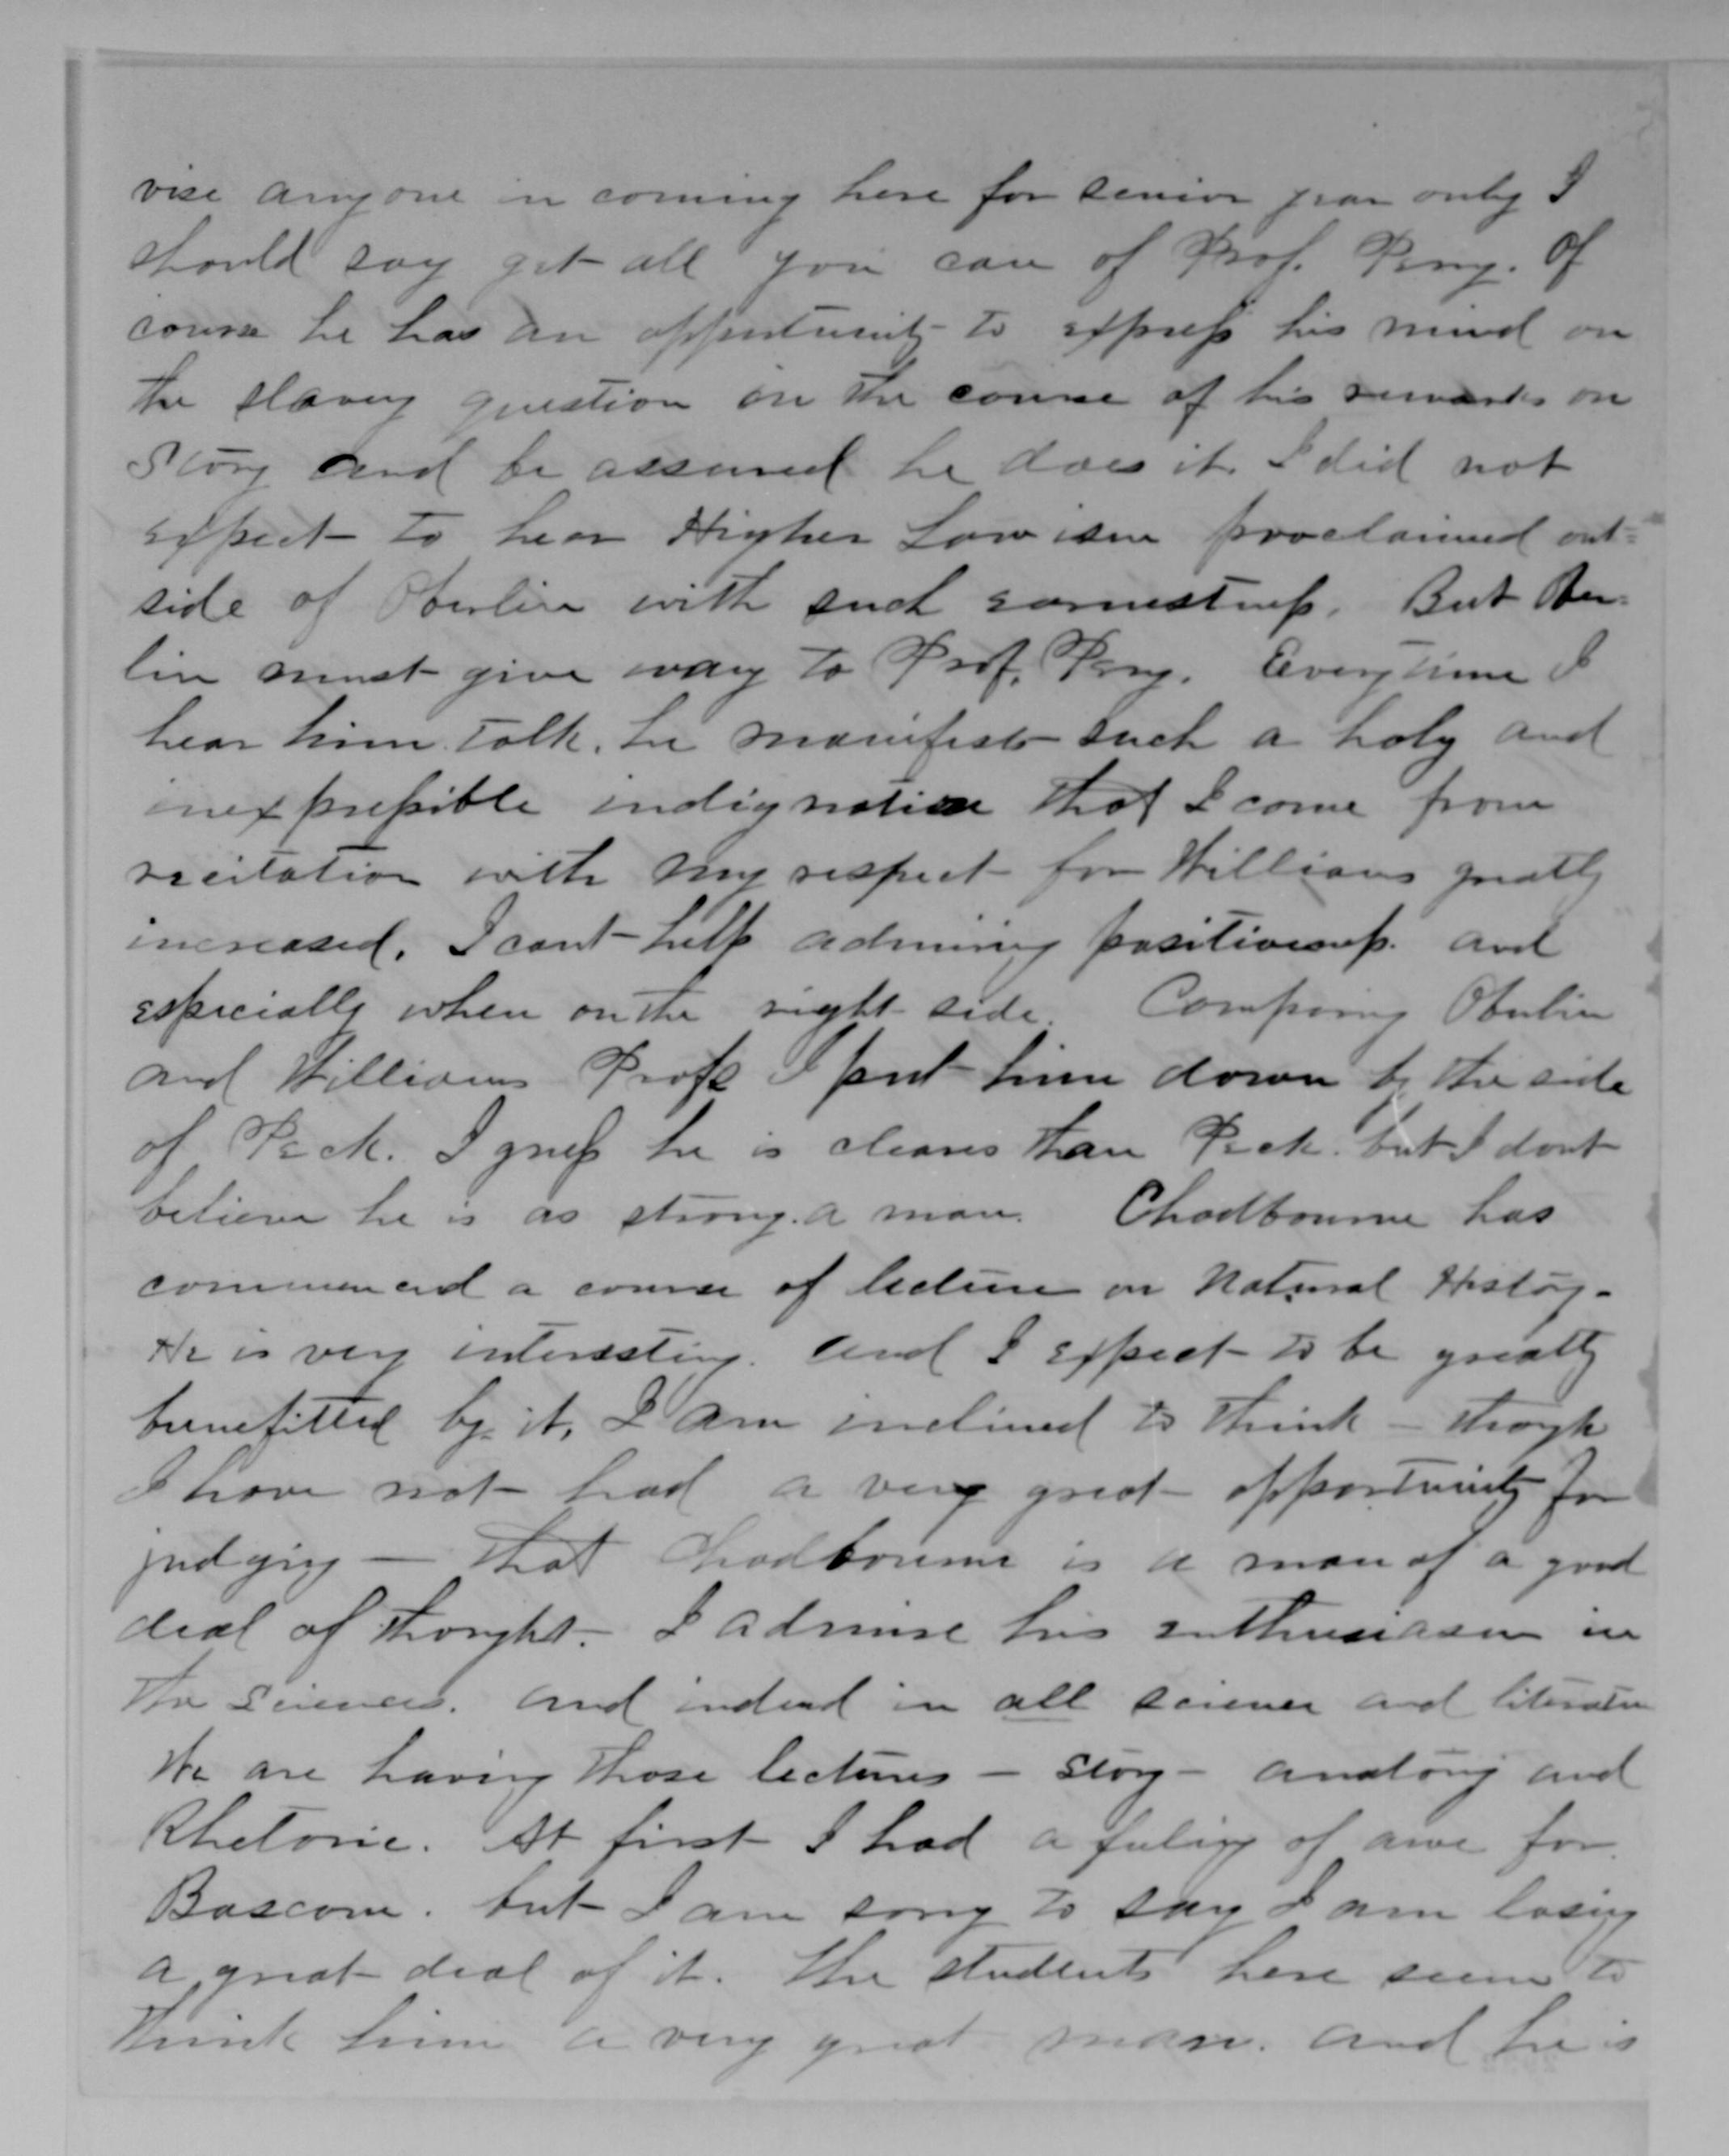 vise anyone in coming here for senior year only I
should say get all you can of Prof. Perry. Of
course he has an opportunity to express his mind on
the slavery question in the course of his remarks on
Story and be assured he does it. I did not
expect to hear Higher Lawism proclaimed out=
side of Oberlin with such earnestness. But Ober=
lin must give way to Prof. Perry. Everytime I
hear him talk, he manifests such a holy and
inexpressible indignation that I come from
recitation with my respect for Williams greatly
increased. I cant help admiring positiveness and
especially when on the right side. Comparing Oberlin
and Williams Profs I put him down by the side
of Peck. I guess he is clearer than Peck. but I dont
believe he is as strong a man. Chadbourne has
commenced a course of lectures on Natural History.
He is very interesting. and I expect to be greatly
benefitted by it, I am inclined to think – though
I have not had a very great opportunity for
judging — that Chadbourne is a man of a good
deal of thought. I admire his enthusiasm in
the sciences. and indeed in all science and literature
We are having those lectures – Story – anatomy and
Rhetoric. At first I had a feeling of awe for
Bascom. but I am sorry to say I am losing
a great deal of it. The students here seem to
think him a very great man. and he is